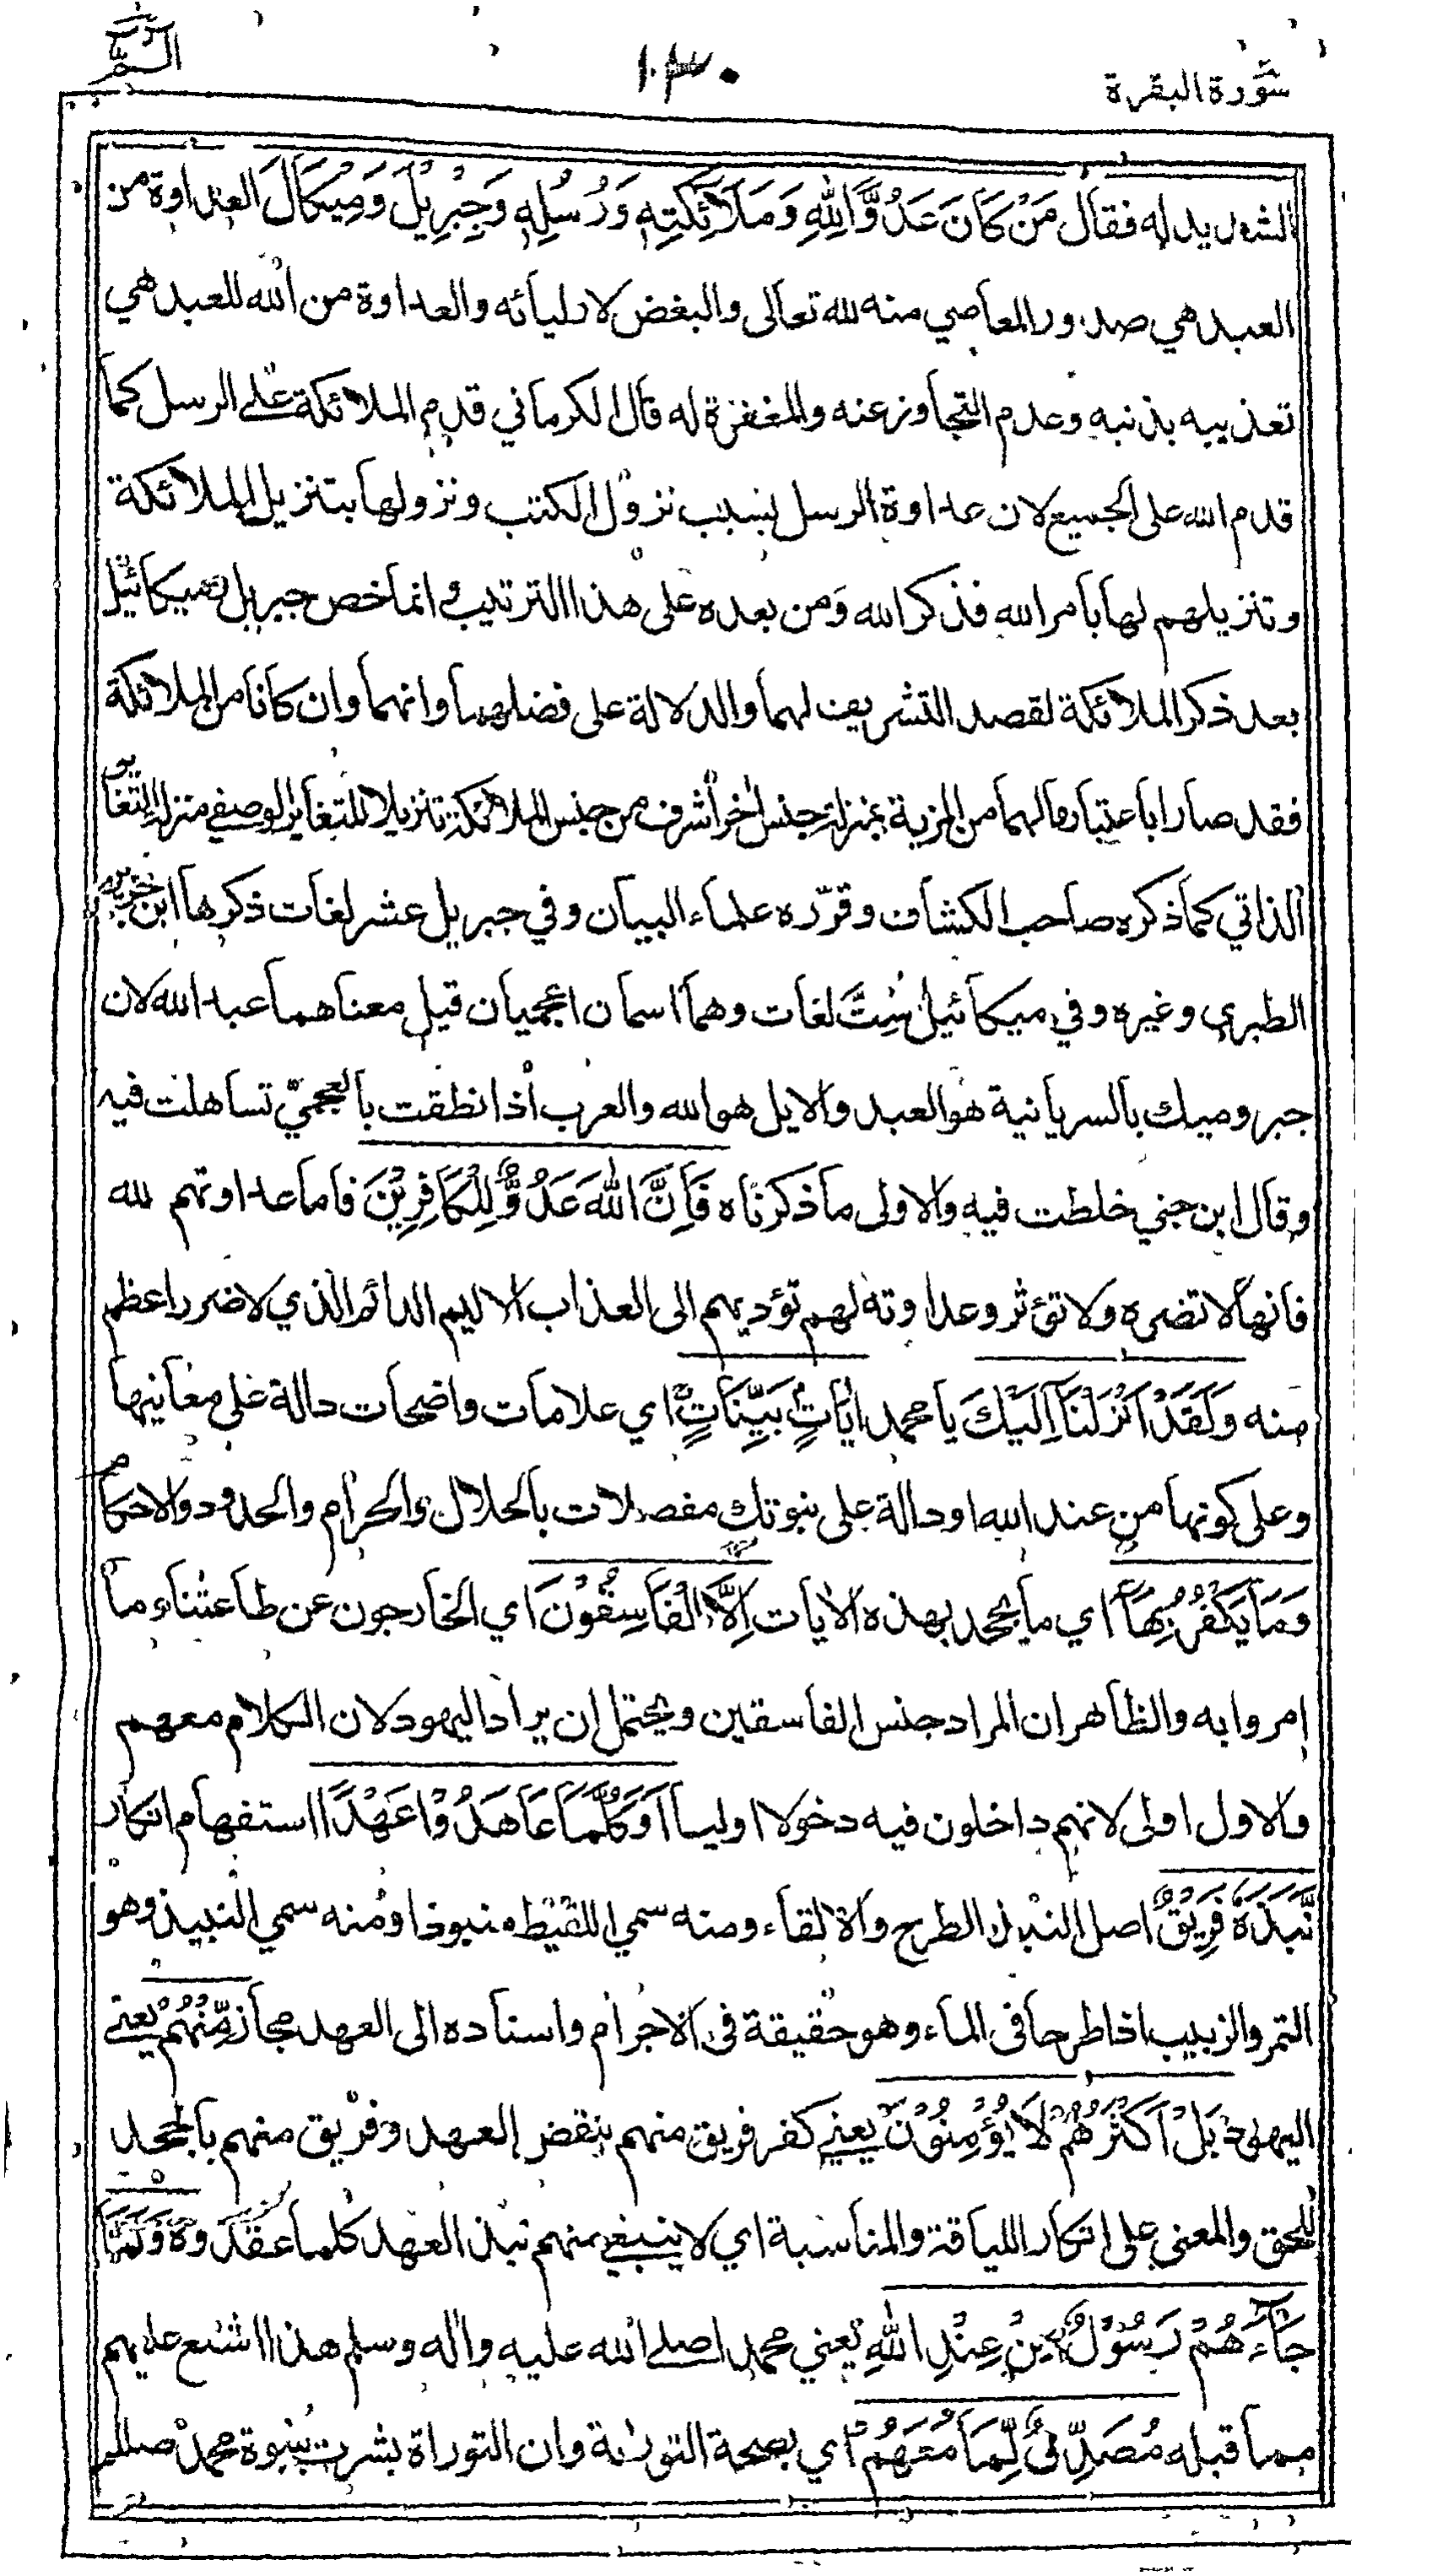 سورة البقرة
١٣٠
الشديد له فقال مَنْ كَانَ عَدُوًّا لِلّٰهِ وَمَلَآئِكَتِهٖ وَرُسُلِهٖ وَجِبْرِيْلَ وَمِيْكَالَ العداوة من
العبد هي صدور المعاصي منه لله تعالى والبغض لاوليائه والعداوة من الله للعبد هي
تعذيبه بذنبه وعدم التجاوز عنه والمغفرة له قال الكرماني قدم الملائكة على الرسل كما
قدم الله على الجميع لان عداوة الرسل بسبب نزول الكتب ونزولها بتنزيل الملائكة
وتنزيلهم لها بامر الله فذكر الله ومن بعده على هذا الترتيب وانما خص جبريل وميكائيل
بعد ذكر الملائكة لقصد التشريف لهما والدلالة على فضلهما وانهما وان كانا من الملائكة
فقد صارا باعتبار مالهما من المزية بمنزلة جنس اخر اشرف من جنس الملائكة تنزيلا للتغاير الوصفي منزلة التغاير
الذاتي كما ذكره صاحب الكشاف وقرّره علماء البيان وفي جبريل عشر لغات ذكرها ابن جرير
الطبري وغيره وفي ميكائيل سِتّ لغات وهما اسمان اعجميان قيل معناهما عبد الله لان
جبر وميك بالسريانية هو العبد والايل هو الله والعرب اذا نطقت بالعجميّ تساهلت فيه
وقال ابن جني خلطت فيه والاولى ما ذكرناه فَاِنَّ اللّٰهَ عَدُوٌّ لِلْكَافِرِيْنَ فاما عداوتهم لله
فانها لا تضره ولا تؤثر وعداوته لهم تؤديهم الى العذاب الاليم الدائم الذي لا ضرر اعظم
منه وَلَقَدْ اَنْزَلْنَآ اِلَيْكَ يا محمد اٰيَاتٍ بَيِّنَاتٍ اي علامات واضحات دالة على معانيها
وعلى كونها من عند الله او دالة على نبوتك مفصلات بالحلال والحرام والحدود والاحكام
وَمَا يَكْفُرُ بِهَآ اي ما يجحد بهذه الايات اِلَّا الْفَاسِقُوْنَ اي الخارجون عن طاعتنا وما
امروا به والظاهر ان المراد جنس الفاسقين ويحتمل ان يراد اليهود لان الكلام معهم
والاول اولى لانهم داخلون فيه دخولا اوليا اَوَكُلَّمَا عَاهَدُوْا عَهْدًا استفهام انكار
نَّبَذَهٗ فَرِيْقٌ اصل النبذ الطرح والالقاء ومنه سمي اللقيط منبوذا ومنه سمي النبيذ وهو
التمر والزبيب اذا طرحا في الماء وهو حقيقة في الاجرام واسناده الى العهد مجاز مِّنْهُمْ يعني
اليهود بَلْ اَكْثَرُهُمْ لَا يُؤْمِنُوْنَ يعني كفر فريق منهم بنقض العهد وفريق منهم بالجحد
للحق والمعنى على انكار اللياقة والمناسبة اي لا ينبغي منهم نبذ العهد كلما عقدوه وَلَمَّا
جَآءَهُمْ رَسُوْلٌ مِّنْ عِنْدِ اللّٰهِ يعني محمدا صلى الله عليه واله وسلم هذا اشنع عليهم
مما قبله مُصَدِّقٌ لِّمَا مَعَهُمْ اي بصحة التورٰىة وان التوراة بشرت بنبوة محمد صللم